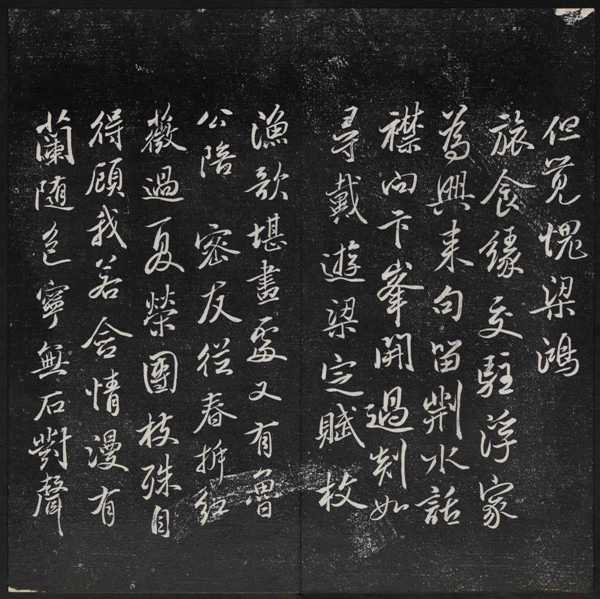 但覺愧梁鴻
旅食緣交駐浮家
為興來句留荆水話
襟向卞峯開過剡如
尋戴遊梁定賦枚
漁歌堪畫處又有魯
公陪 密友從春拆紅
薇過夏榮團枝殊自
得顧我若含情漫有
蘭隨色寧無石對聲